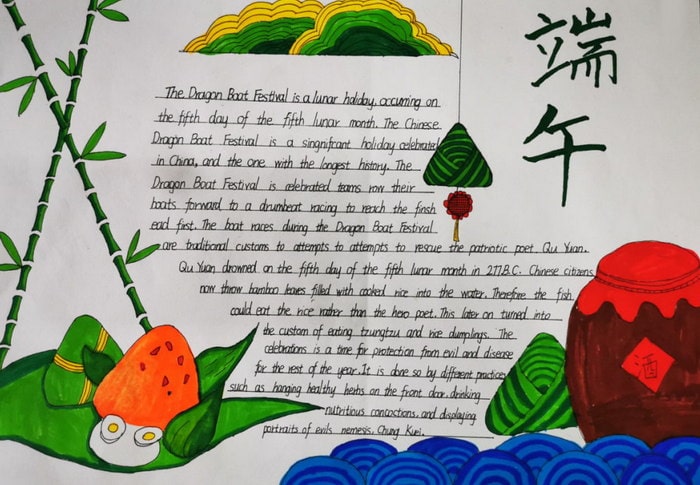 端
午
The Dragon Boat Festival is a lunar holiday, occurring on
the fifth day of the fifth lunar month. The Chinese
Dragon Boat Festival is a singnifrant holiday celebrated
in China, and the one with the longest history. The
Dragon Boat Festival is celebrated teams row their
boats forward to a drumbeat racing to reach the finsh
ead first. The boat races during the Dragon Boat Festival
are traditional customs to attempts to attempts to rescue the patriotic poet Qu Yuan.
Qu Yuan drowned on the fifth day of the fifth lunar month in 277B.C. Chinese citizens
now throw bamboo leaves filled with cooked rice into the water. Therefore the fish
could eat the rice rather than the hero poet. This later on turned into
the custom of eating tzungtzu and rice dumplings. The
celebrations is a time for protection from evil and disease
for the rest of the year. It is done so by different practices
such as hanging healthy herbs on the front door, drinking
nutritious concoctions, and displaying
portraits of evils nemesis, Chung Kuei.
酒